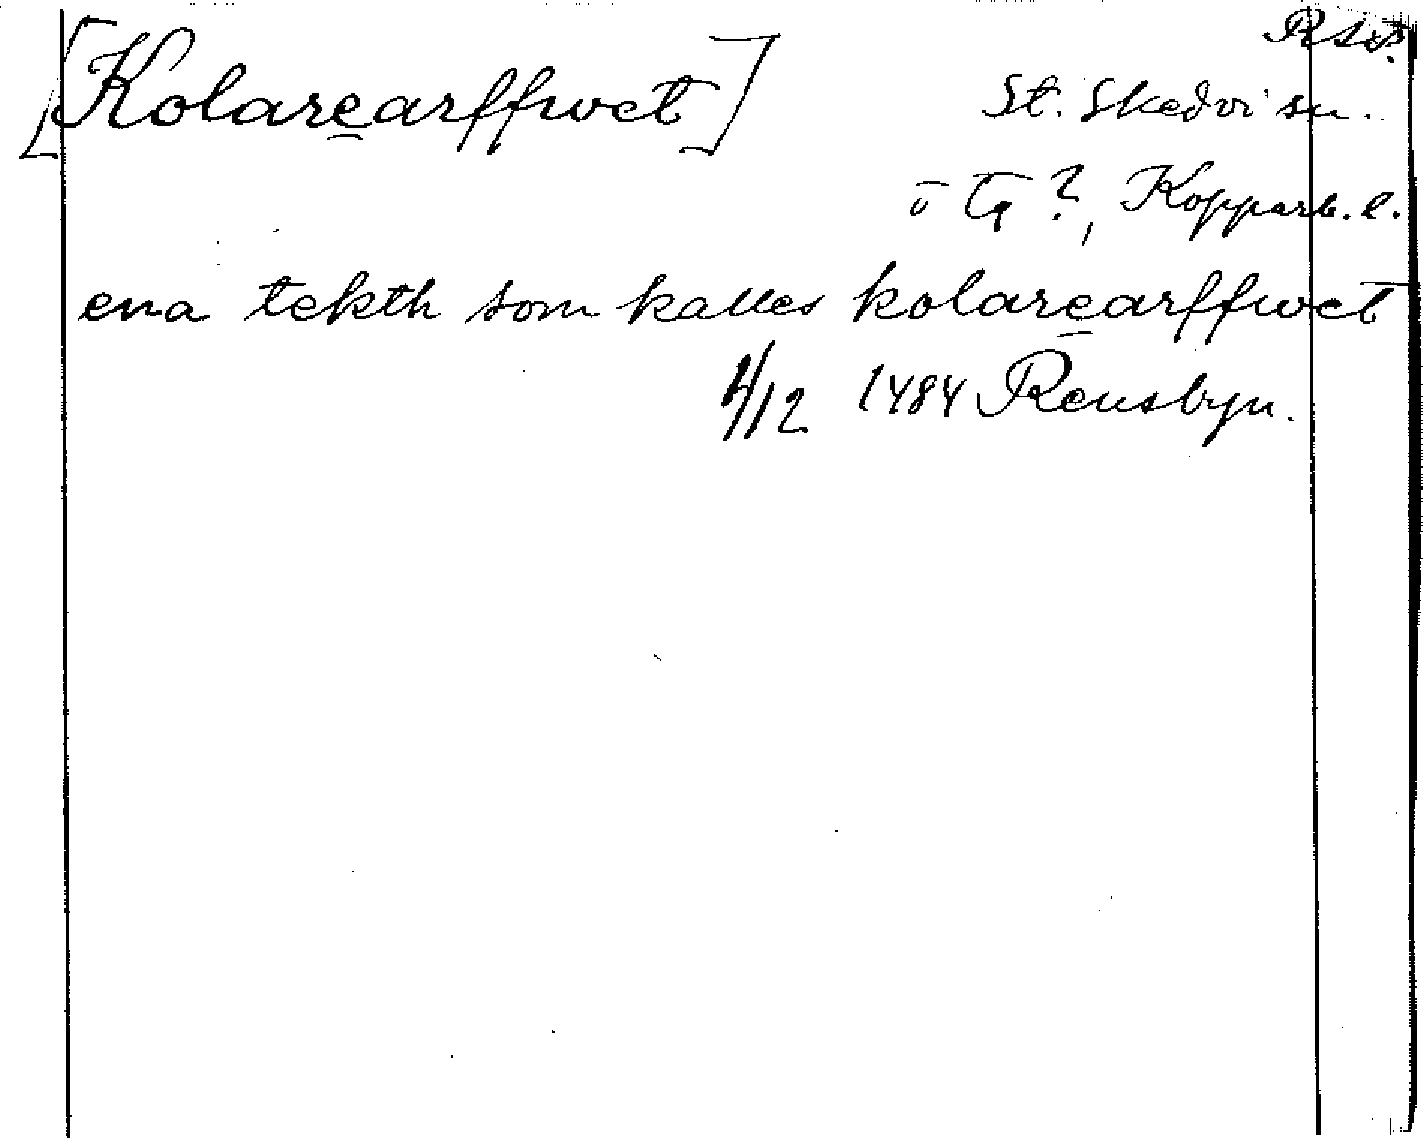 [Kolarearffwet]
St. Skedvi sn.
ö Tg ?, Kopparb. l.
ena tekth som kalles kolarearffwet
4/12 1484 Rensbyn.